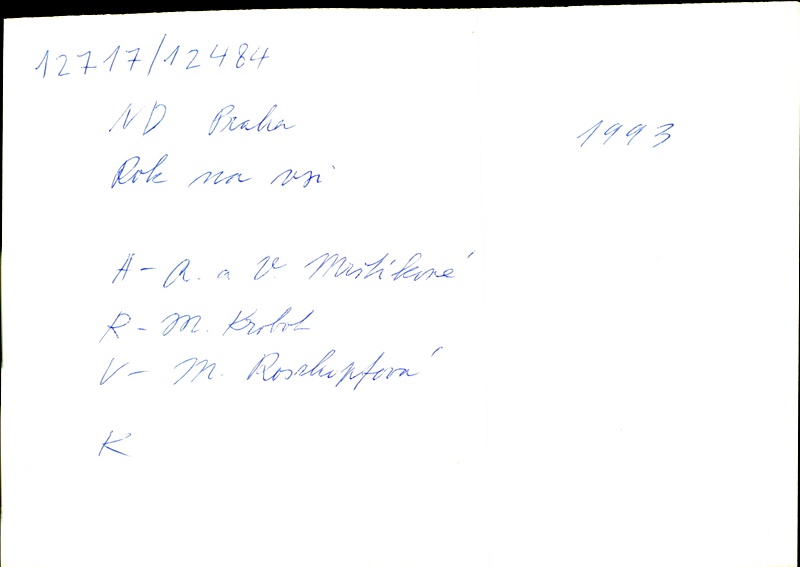 12717/12484
ND Praha
1993
Rok na vsi
A - A. a V. Mrštíkové
R - M. Krobot
V - M. Roszkopfová
K